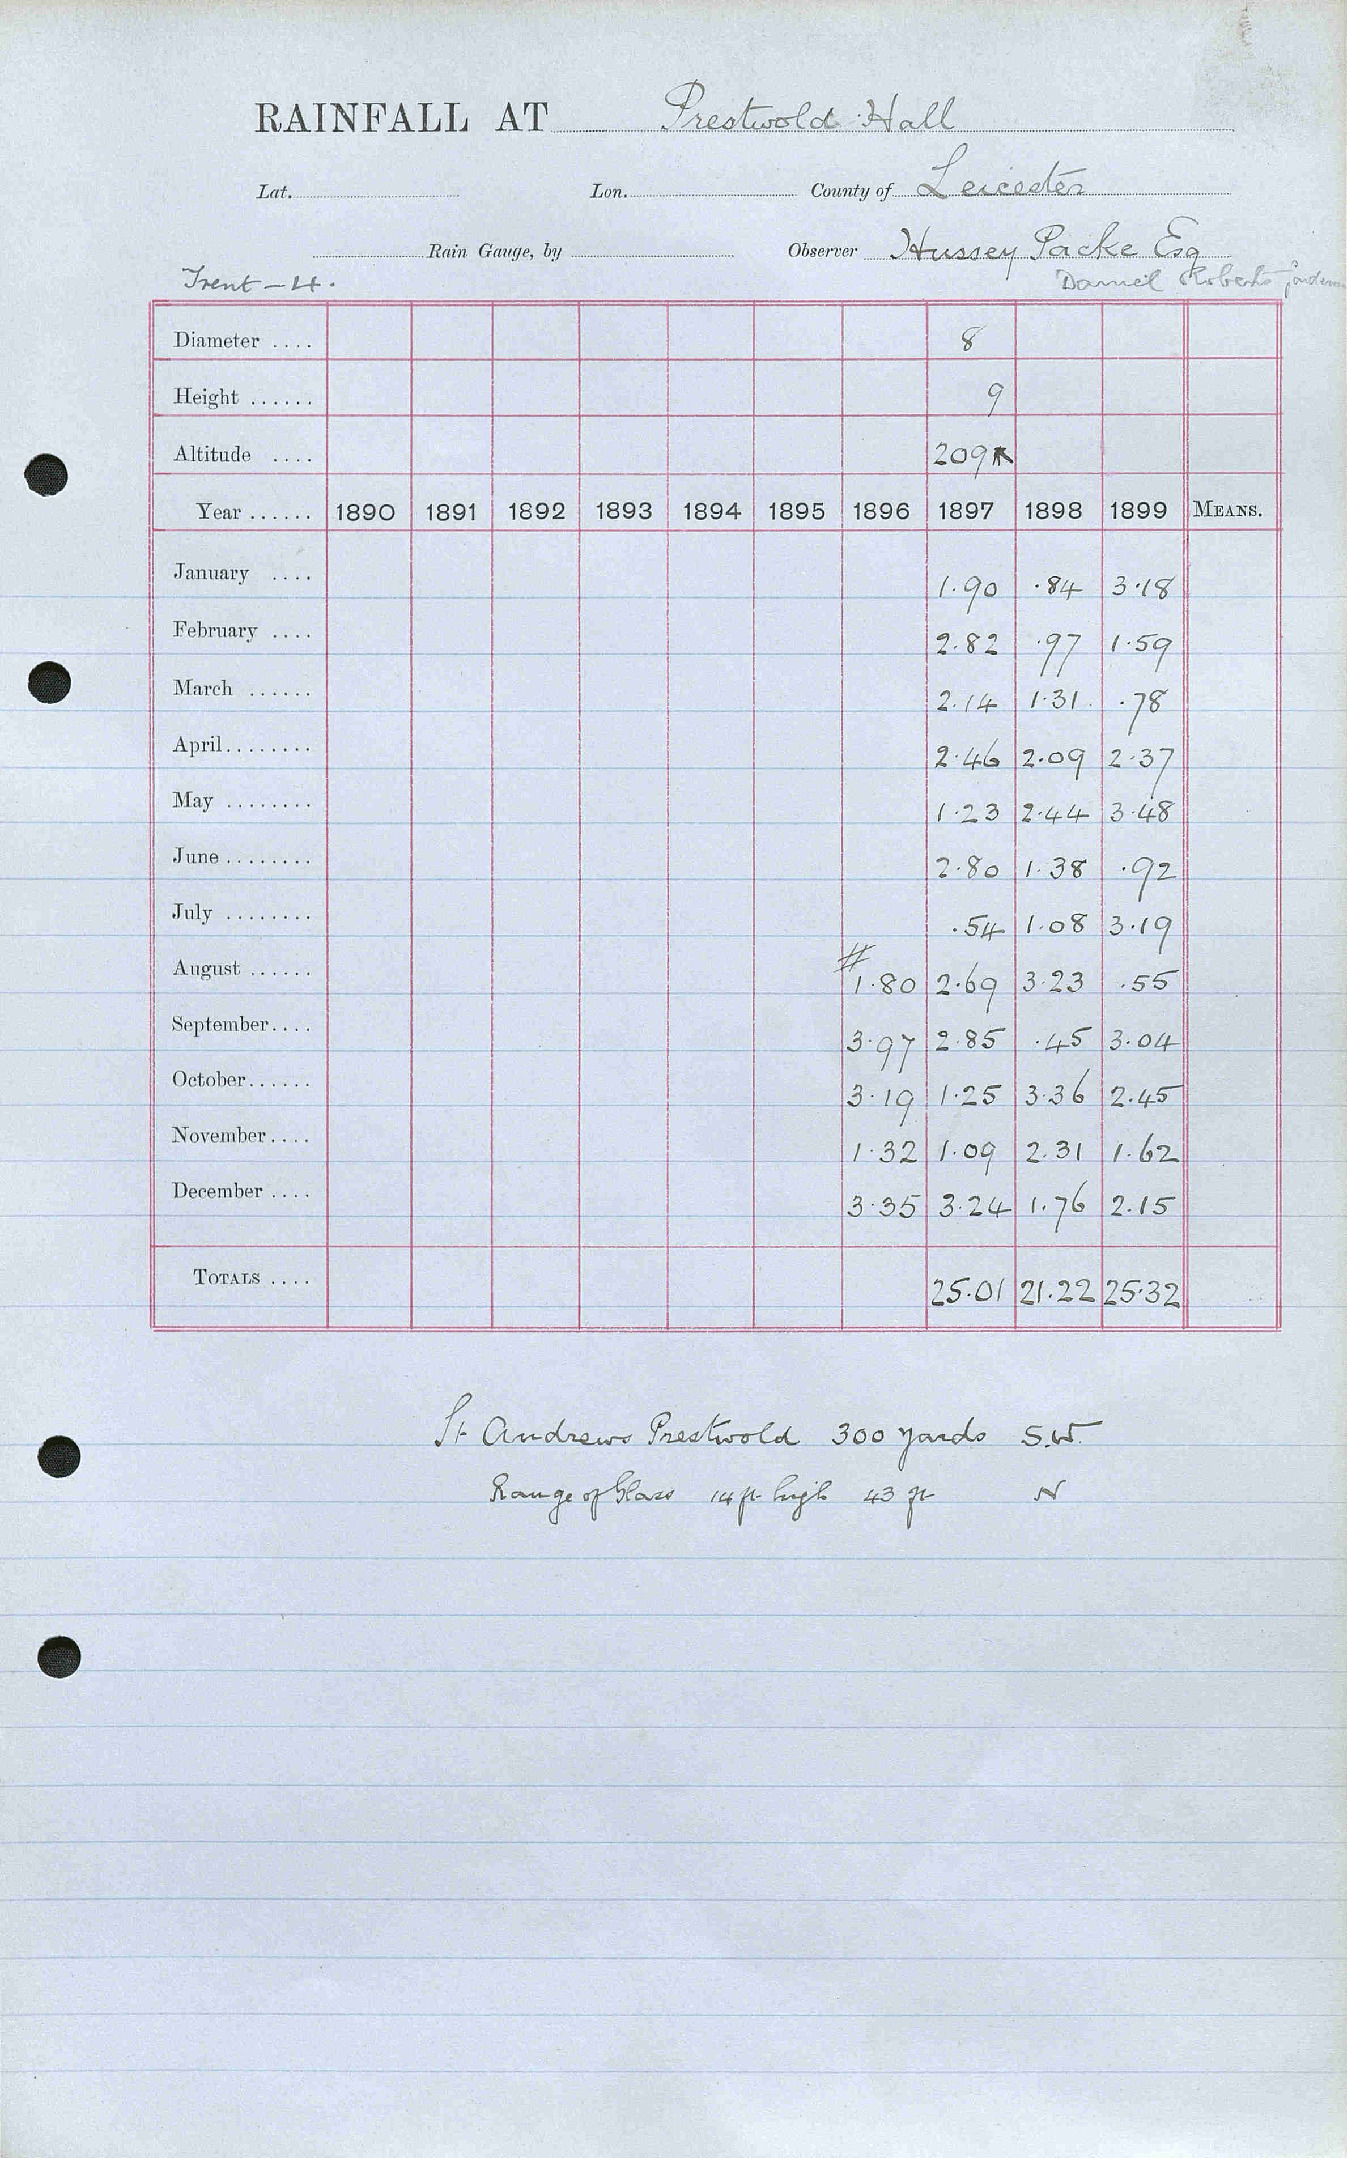 RAINFALL AT Prestwold Hall
Lat. Lon. County of Leicester
Rain Gauge, by Observer Hussey Packe Esq
Trent - 4. Daniel Roberts gardener
Diameter .... 8
Height ...... 9
Altitude .... 209
Year ...... 1890 1891 1892 1893 1894 1895 1896 1897 1898 1899 MEANS.
January .... 1.90 .84 3.18
February .... 2.82 .97 1.59
March ...... 2.14 1.31 .78
April........ 2.46 2.09 2.37
May ........ 1.23 2.44 3.48
June ........ 2.80 1.38 .92
July ........ .54 1.08 3.19
August ...... # 1.80 2.69 3.23 .55
September.... 3.97 2.85 .45 3.04
October...... 3.19 1.25 3.36 2.45
November.... 1.32 1.09 2.31 1.62
December .... 3.35 3.24 1.76 2.15
TOTALS .... 25.01 21.22 25.32
St Andrews Prestwold 300 yards S.W.
Range of Glass 14 ft high 43 ft N